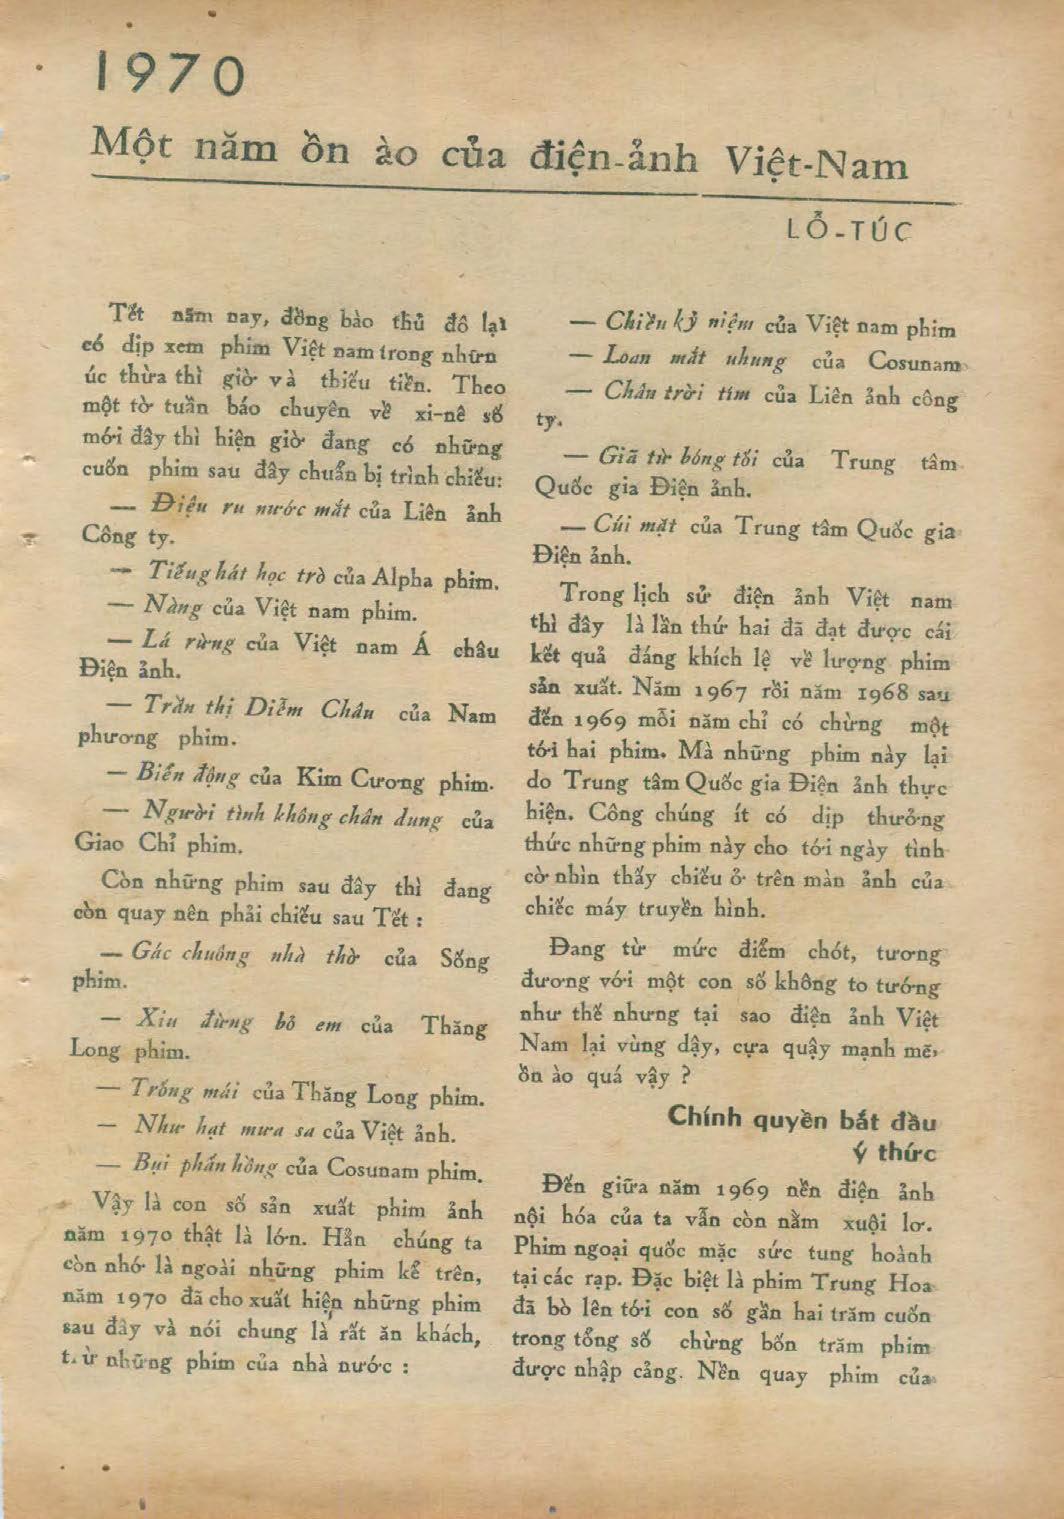 1970
Một năm ồn ào của điện-ảnh Việt-Nam
LỖ-TÚC
Tết năm nay, đồng bào thủ đô lại
có dịp xem phim Việt nam trong nhữn
úc thừa thì giờ và thiếu tiền. Theo
một tờ tuần báo chuyên về xi-nê số
mới đây thì hiện giờ đang có những
cuốn phim sau đây chuẩn bị trình chiếu:
— Điệu ru nước mắt của Liên ảnh
Công ty.
— Tiếug hát học trò của Alpha phim.
— Nàng của Việt nam phim.
— Lá rừng của Việt nam Á châu
Điện ảnh.
— Trần thị Diễm Châu của Nam
phương phim.
— Biến động của Kim Cương phim.
— Người tình không chân dung của
Giao Chỉ phim.
Còn những phim sau đây thì đang
còn quay nên phải chiếu sau Tết :
— Gác chuông nhà thờ của Sống
phim.
— Xiu đừng bỏ em của Thăng
Long phim.
— Trống mái của Thăng Long phim.
— Như hạt mưa sa của Việt ảnh.
— Bụi phấn hồng của Cosunam phim.
Vậy là con số sản xuất phim ảnh
năm 1970 thật là lớn. Hẳn chúng ta
còn nhớ là ngoài những phim kể trên,
năm 1970 đã cho xuất hiện những phim
sau đây và nói chung là rất ăn khách,
t.ừ những phim của nhà nước :
— Chiều kỷ niệm của Việt nam phim
— Loan mắt uhung của Cosunam
— Chân trời tím của Liên ảnh công
ty.
— Giã từ bóng tối của Trung tâm
Quốc gia Điện ảnh.
— Cúi mặt của Trung tâm Quốc gia
Điện ảnh.
Trong lịch sử điện ảnh Việt nam
thì đây là lần thứ hai đã đạt được cái
kết quả đáng khích lệ về lượng phim
sản xuất. Năm 1967 rồi năm 1968 sau
đến 1969 mỗi năm chỉ có chừng một
tới hai phim. Mà những phim này lại
do Trung tâm Quốc gia Điện ảnh thực
hiện. Công chúng ít có dịp thưởng
thức những phim này cho tới ngày tình
cờ nhìn thấy chiếu ở trên màn ảnh của
chiếc máy truyền hình.
Đang từ mức điểm chót, tương
đương với một con số không to tướng
như thế nhưng tại sao điện ảnh Việt
Nam lại vùng dậy, cựa quậy mạnh mẽ,
ồn ào quá vậy ?
Chính quyền bắt đầu
ý thức
Đến giữa năm 1969 nền điện ảnh
nội hóa của ta vẫn còn nằm xuội lơ.
Phim ngoại quốc mặc sức tung hoành
tại các rạp. Đặc biệt là phim Trung Hoa
đã bò lên tới con số gần hai trăm cuốn
trong tổng số chừng bốn trăm phim
được nhập cảng. Nền quay phim của